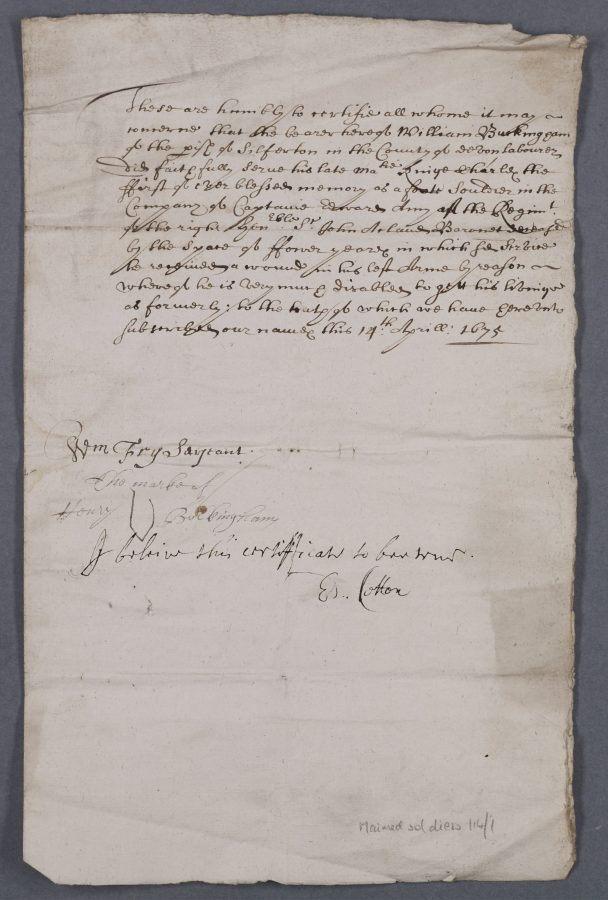 These are humbly to certifie all whome it may
concerne that the bearer hereof William Buckingham
of the pish of Silferton in the County of devon labourer
did faithfully serve his late Matie Kinge Charles the
ffirst of ever blessed memory as a foott Souldier in the
Company of Captaine Edward in the Regimt
of the right Honble Sr John Acland Baronet deceased
by the space of ffower yeares in which sd Service
he received a wound in his left Arme by reason
whereof he is very much disabled to gett his livinge
as formerly: to the truth of which we have hereunto
subscribed our names this 14th Aprill: 1675
Wm Fry Sarjeant
The marke of
Henry Buckingham
I beleive this certifficate to bee true.
Ed.. Cotton
Maimed soldiers 114/1